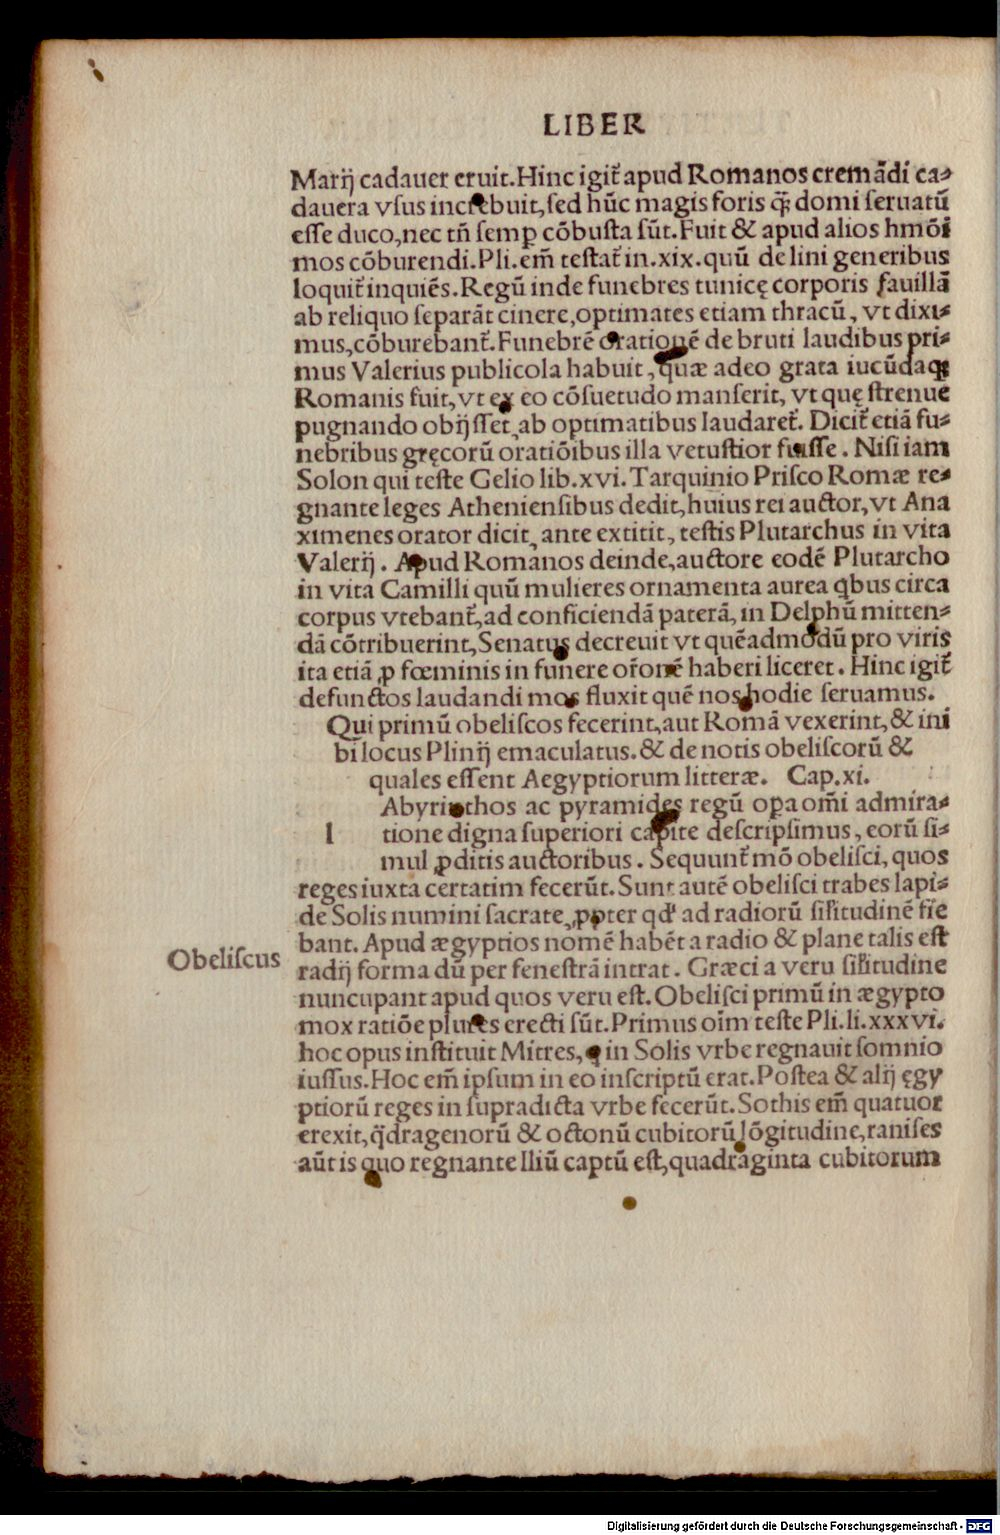 LIBER
Marij cadauer eruit. Hinc igit̃ apud Romanos cremãdi ca-
dauera vsus increbuit, sed hũc magis foris q̃ domi seruatũ
esse duco, nec tñ semꝑ cõbusta sũt. Fuit & apud alios hmõi
mos cõburendi. Pli. em̃ testat̃ in. xix. quũ de lini generibus
loquit̃ inquiẽs. Regũ inde funebres tunicę corporis fauillã
ab reliquo separãt cinere, optimates etiam thracũ, vt dixi-
mus, cõburebant̃. Funebrẽ orationẽ de bruti laudibus pri-
mus Valerius publicola habuit, quæ adeo grata iucũdaꝗ
Romanis fuit, vt ex eo cõsuetudo manserit, vt quę strenue
pugnando obijsset, ab optimatibus laudaret̃. Dicit̃ etiã fu-
nebribus gręcorũ oratiõibus illa vetustior fuisse. Nisi iam
Solon qui teste Gelio lib. xvi. Tarquinio Prisco Romæ re-
gnante leges Atheniensibus dedit, huius rei auctor, vt Ana
ximenes orator dicit, ante extitit, testis Plutarchus in vita
Valerij. Apud Romanos deinde, auctore eodẽ Plutarcho
in vita Camilli quũ mulieres ornamenta aurea q̇bus circa
corpus vtebant̃, ad conficiendã paterã, in Delphũ mitten-
dã cõtribuerint, Senatus decreuit vt quẽadmodũ pro viris
ita etiã ꝓ fœminis in funere or̃onẽ haberi liceret. Hinc igit̃
defunctos laudandi mos fluxit quẽ nos hodie seruamus.
Qui primũ obeliscos fecerint, aut Romã vexerint, & ini
bi locus Plinij emaculatus. & de notis obeliscorũ &
quales essent Aegyptiorum litteræ. Cap. xi.
Abyrinthos ac pyramides regũ oꝑa om̃i admira-
l tione digna superiori capite descripsimus, eorũ si-
mul ꝓditis auctoribus. Sequunt̃ mõ obelisci, quos
reges iuxta certatim fecerũt. Sunt autẽ obelisci trabes lapi-
de Solis numini sacrate, ꝓpter qd' ad radiorũ sil'itudinẽ fie
bant. Apud ægyptios nomẽ habẽt a radio & plane talis est
radij forma dũ per fenestrã intrat. Græci a veru sil'itudine
nuncupant apud quos veru est. Obelisci primũ in ægypto
mox ratiõe plures erecti sũt. Primus oim̃ teste Pli. li. xxxvi.
hoc opus instituit Mitres, q in Solis vrbe regnauit somnio
iussus. Hoc em̃ ipsum in eo inscriptũ erat. Postea & alij ęgy
ptiorũ reges in supradicta vrbe fecerũt. Sothis em̃ quatuor
erexit, q̃dragenorũ & octonũ cubitorũ lõgitudine, ranises
aũt is quo regnante Iliũ captũ est, quadraginta cubitorum
Obeliscus
Digitalisierung gefördert durch die Deutsche Forschungsgemeinschaft - DFG